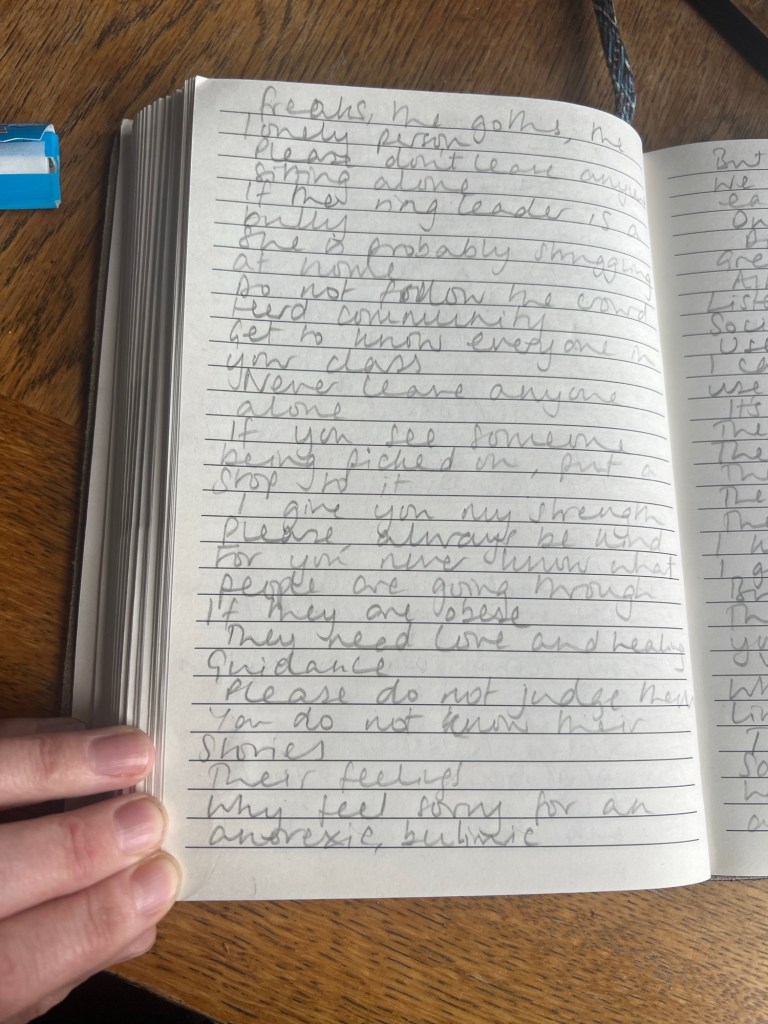 freaks, the goths, the
lonely person
Please don't leave anyone
sitting alone
If the ring leader is a
bully
She is probably struggling
at home
Do not follow the crowd
Feed community
Get to know everyone in
your class
Never leave anyone
alone
If you see someone
being picked on, put a
stop to it
I give you my strength
Please always be kind
For you never know what
people are going through
If they are obese
They need love and healing
Guidance
Please do not judge them
You do not know their
Stories
Their feelings
Why feel sorry for an
anorexic, bulimic
But
We
ea
On
Gre
All
Liste
Soci
Use
I ca
use
It's
The
The
The
The
The
I w
I g
Bu
Th
yo
Wh
Lin
I
So
W
a